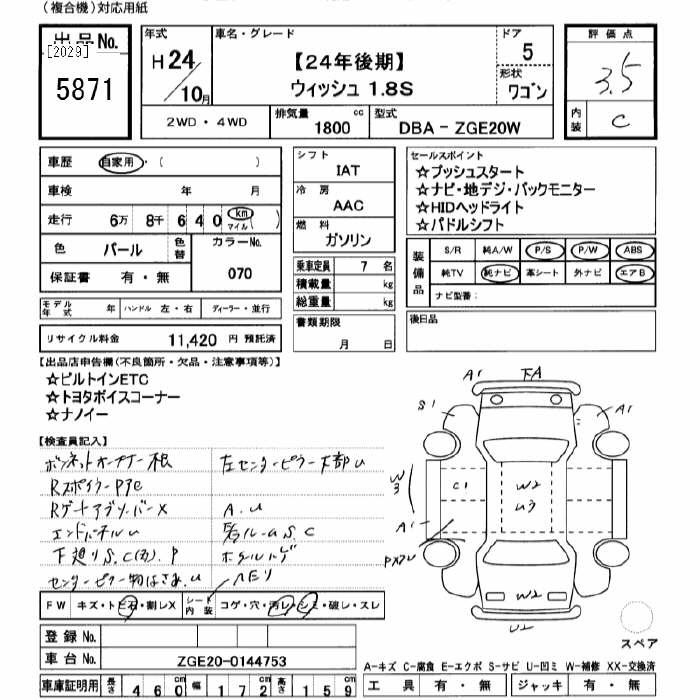 (複合機)対応用紙
出品No.
[2029]
5871
年式
H24/10月
車名・グレード
【24年後期】
ウィッシュ 1.8S
ドア
5
形状
ワゴン
評価点
3.5
内装
C
2WD・4WD
排気量
1800 cc
型式
DBA - ZGE20W
車歴 自家用・( )
車検 年 月
走行 6万 8千 640 km マイル( )
色 パール 色替 カラーNo. 070
保証書 有・無
モデル年式 年 ハンドル 左・右 ディーラー・並行
リサイクル料金 11,420 円 預託済
シフト
IAT
冷房
AAC
燃料
ガソリン
乗車定員 7 名
積載量 kg
総重量 kg
書類期限
月 日
セールスポイント
☆プッシュスタート
☆ナビ・地デジ・バックモニター
☆HIDヘッドライト
☆パドルシフト
装備品
S/R 純A/W P/S P/W ABS
純TV 純ナビ 革シート 外ナビ エアB
ナビ型番:
後日品
【出品店申告欄(不良箇所・欠品・注意事項等)】
☆ビルトインETC
☆トヨタボイスコーナー
☆ナノイー
【検査員記入】
左センターピラー下部U
A.U
S.C
下廻りS.C
FW キズ・トビ石・割レX シート内装 コゲ・穴・汚レ・シミ・破レ・スレ
登録No.
車台No. ZGE20-0144753
車庫証明用 長さ 460 幅 172 高さ 159
A1 下A
S1 A1
W3 C1 W2
U3
A1
W2
U2
スペア
A-キズ C-腐食 E-エクボ S-サビ U-凹ミ W-補修 XX-交換済
工具 有・無 ジャッキ 有・無